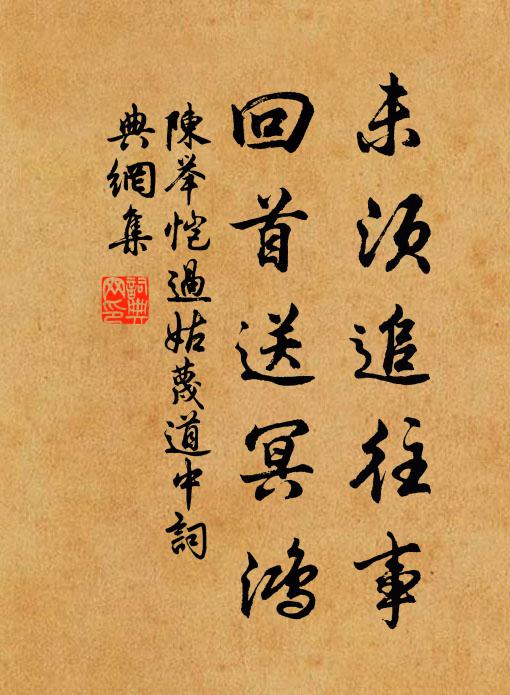 未須追往事
回首送冥鴻
陳举愷過姑蔑道中詞
典網集
詞典网印